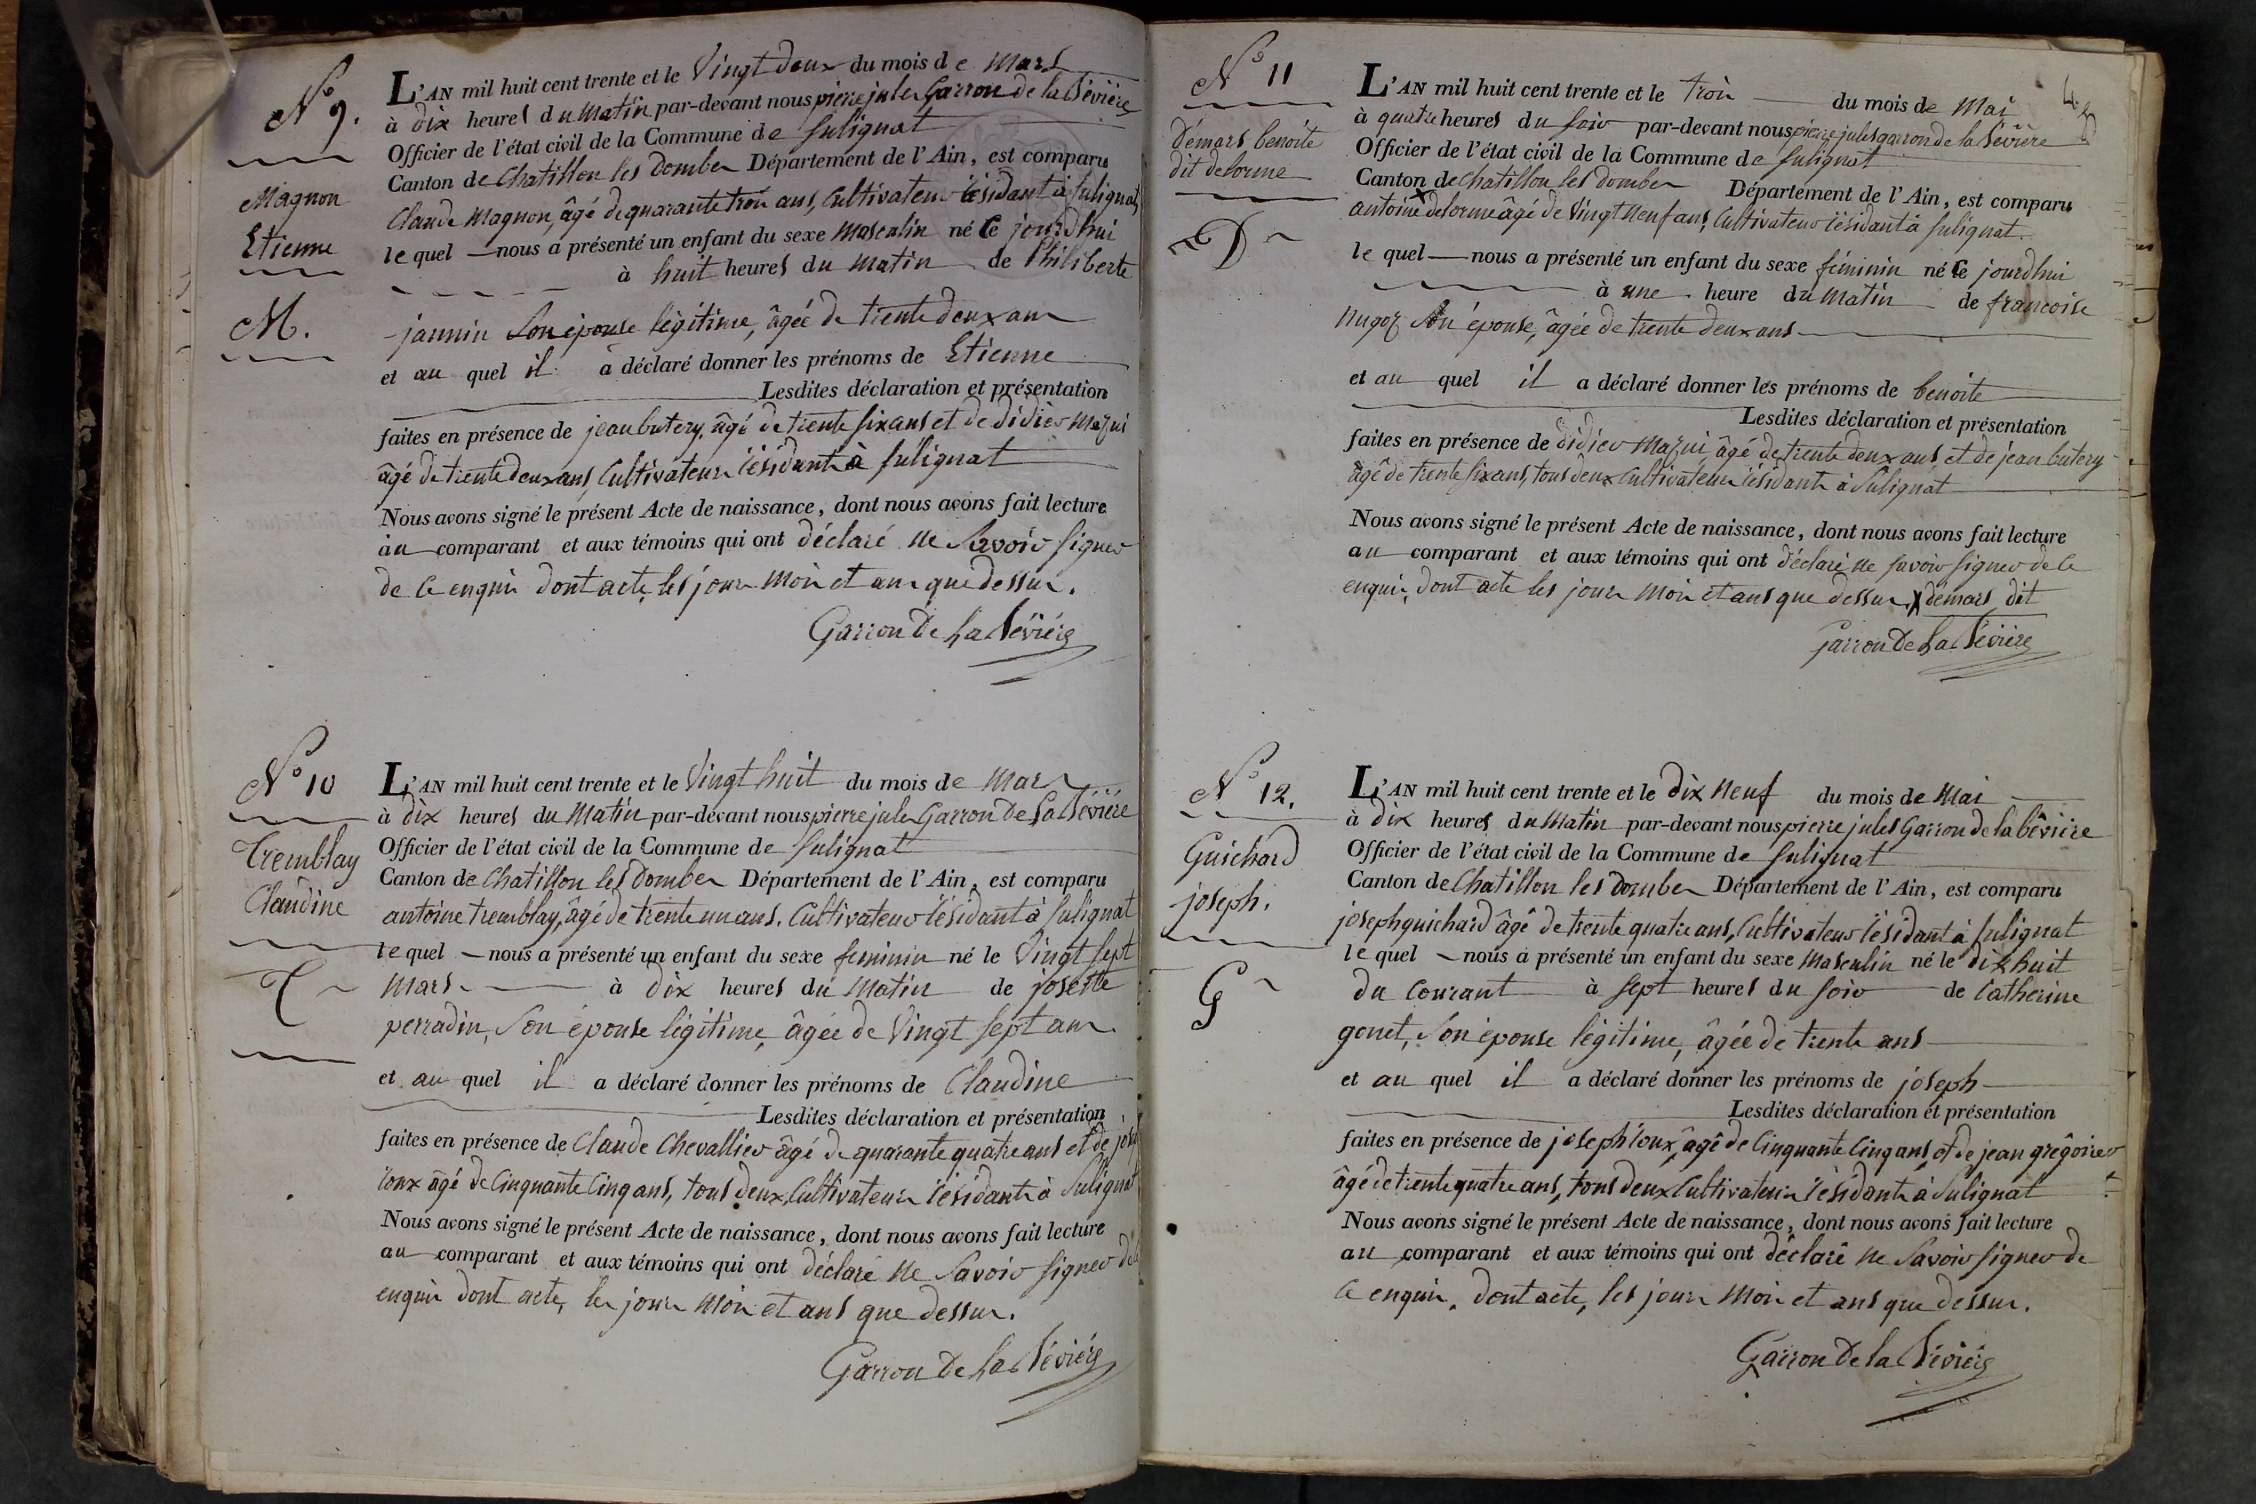 N° 9.
Magnon
Etienne
M.
L'AN mil huit cent trente et le Vingt deux du mois de Mars
à dix heures du Matin par-devant nous pierre jules Garron de la Bévière
Officier de l'état civil de la Commune de Sulignat
Canton de Chatillon les Dombes Département de l'Ain, est comparu
Claude Magnon, âgé de quarante trois ans, Cultivateur résidant à Sulignat,
le quel nous a présenté un enfant du sexe Masculin né Ce jourdhui
à huit heures du Matin de Philiberte
jannin Son épouse légitime, âgée de trente deux ans
et au quel il a déclaré donner les prénoms de Etienne
Lesdites déclaration et présentation
faites en présence de jean butery, âgé de trente six ans et de didier Mazui
âgé de trente deux ans, Cultivateurs résidants à Sulignat
Nous avons signé le présent Acte de naissance, dont nous avons fait lecture
au comparant et aux témoins qui ont déclaré ne Savoir signer
de ce enquis dont acte, les jours Mois et ans que dessus.
Garron De La Bévière
N° 10
Tremblay
Claudine
T
L'AN mil huit cent trente et le Vingt huit du mois de Mars
à dix heures du Matin par-devant nous pierre jules Garron De La Bévière
Officier de l'état civil de la Commune de Sulignat
Canton de Chatillon les Dombes Département de l'Ain, est comparu
antoine tremblay, âgé de trente un ans, Cultivateur résidant à Sulignat
le quel nous a présenté un enfant du sexe feminin né le Vingt sept
Mars à dix heures du Matin de josette
perradin, Son épouse légitime, âgée de Vingt sept ans
et au quel il a déclaré donner les prénoms de Claudine
Lesdites déclaration et présentation
faites en présence de Claude Chevallier âgé de quarante quatre ans et de
roux âgé de Cinquante Cinq ans, tous deux Cultivateurs résidants à Sulignat
Nous avons signé le présent Acte de naissance, dont nous avons fait lecture
au comparant et aux témoins qui ont déclaré ne Savoir signer de
enquis dont acte, les jours Mois et ans que dessus.
Garron De La Bévière
N° 11
Démars benoite
dit delorme
D
L'AN mil huit cent trente et le trois du mois de Mai
à quatre heures du soir par-devant nous pierre jules garron de la Bévière
Officier de l'état civil de la Commune de Sulignat
Canton de Chatillon les dombes Département de l'Ain, est comparu
antoine X delorme âgé de Vingt Neuf ans, Cultivateur résidant à Sulignat.
le quel nous a présenté un enfant du sexe féminin né Ce jourdhui
à une heure du Matin de francoise
Son épouse, âgée de trente deux ans
et au quel il a déclaré donner les prénoms de benoite
Lesdites déclaration et présentation
faites en présence de didier Mazui âgé de trente deux ans et de jean butery
âgé de trente six ans, tous deux Cultivateurs résidants à Sulignat
Nous avons signé le présent Acte de naissance, dont nous avons fait lecture
au comparant et aux témoins qui ont déclaré ne savoir signer de ce
enquis, dont acte les jours Mois et ans que dessus, X démars dit
Garron De La Bévière
N° 12.
Guichard
joseph.
G
L'AN mil huit cent trente et le dix Neuf du mois de Mai
à dix heures du Matin par-devant nous pierre jules Garron de la bévière
Officier de l'état civil de la Commune de Sulignat
Canton de Chatillon les Dombes Département de l'Ain, est comparu
joseph guichard âgé de trente quatre ans, Cultivateur résidant à Sulignat
le quel nous a présenté un enfant du sexe Masculin né le dix huit
du Courant à sept heures du soir de Catherine
gonet, Son épouse légitime, âgée de trente ans
et au quel il a déclaré donner les prénoms de joseph
Lesdites déclaration et présentation
faites en présence de joseph roux, âgé de Cinquante Cinq ans, et de jean grégoire
âgé de trente quatre ans, tous deux Cultivateurs résidants à Sulignat
Nous avons signé le présent Acte de naissance, dont nous avons fait lecture
au comparant et aux témoins qui ont déclaré ne Savoir signer de
ce enquis, dont acte, les jours Mois et ans que dessus.
Garron De La Bévière